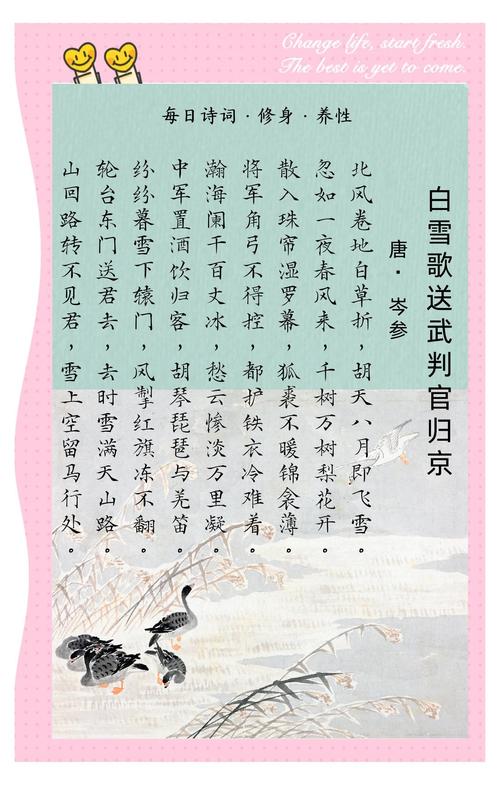 Change life, start fresh.
The best is yet to come.
每日诗词·修身·养性
白雪歌送武判官归京
唐·岑参
北风卷地白草折，胡天八月即飞雪。
忽如一夜春风来，千树万树梨花开。
散入珠帘湿罗幕，狐裘不暖锦衾薄。
将军角弓不得控，都护铁衣冷难着。
瀚海阑干百丈冰，愁云惨淡万里凝。
中军置酒饮归客，胡琴琵琶与羌笛。
纷纷暮雪下辕门，风掣红旗冻不翻。
轮台东门送君去，去时雪满天山路。
山回路转不见君，雪上空留马行处。